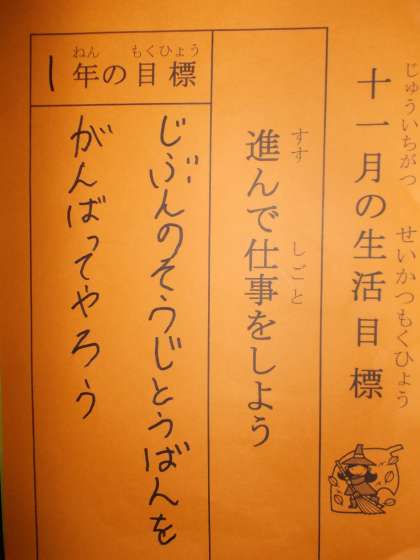 十一月の生活目標
じゅういちがつ せいかつもくひょう
進んで仕事をしよう
すす しごと
1年の目標
ねん もくひょう
じぶんのそうじとうばんを
がんばってやろう